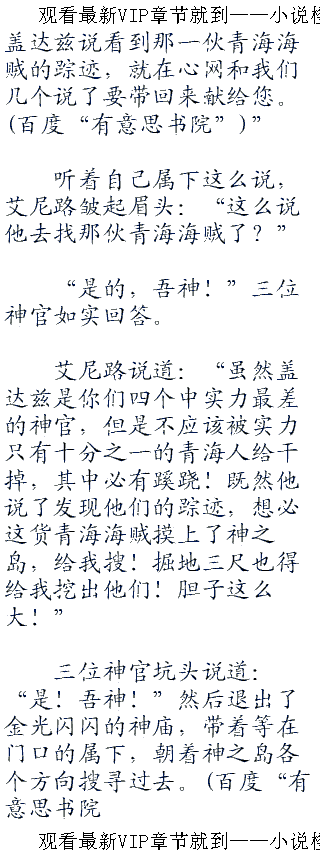 观看最新VIP章节就到——小说检
盖达兹说看到那一伙青海海
贼的踪迹，就在心网和我们
几个说了要带回来献给您。
(百度“有意思书院”)”
听着自己属下这么说，
艾尼路皱起眉头：“这么说
他去找那伙青海海贼了？”
“是的，吾神！”三位
神官如实回答。
艾尼路说道：“虽然盖
达兹是你们四个中实力最差
的神官，但是不应该被实力
只有十分之一的青海人给干
掉，其中必有蹊跷！既然他
说了发现他们的踪迹，想必
这货青海海贼摸上了神之
岛，给我搜！掘地三尺也得
给我挖出他们！胆子这么
大！”
三位神官坑头说道：
“是！吾神！”然后退出了
金光闪闪的神庙，带着等在
门口的属下，朝着神之岛各
个方向搜寻过去。(百度“有
意思书院
观看最新VIP章节就到——小说检